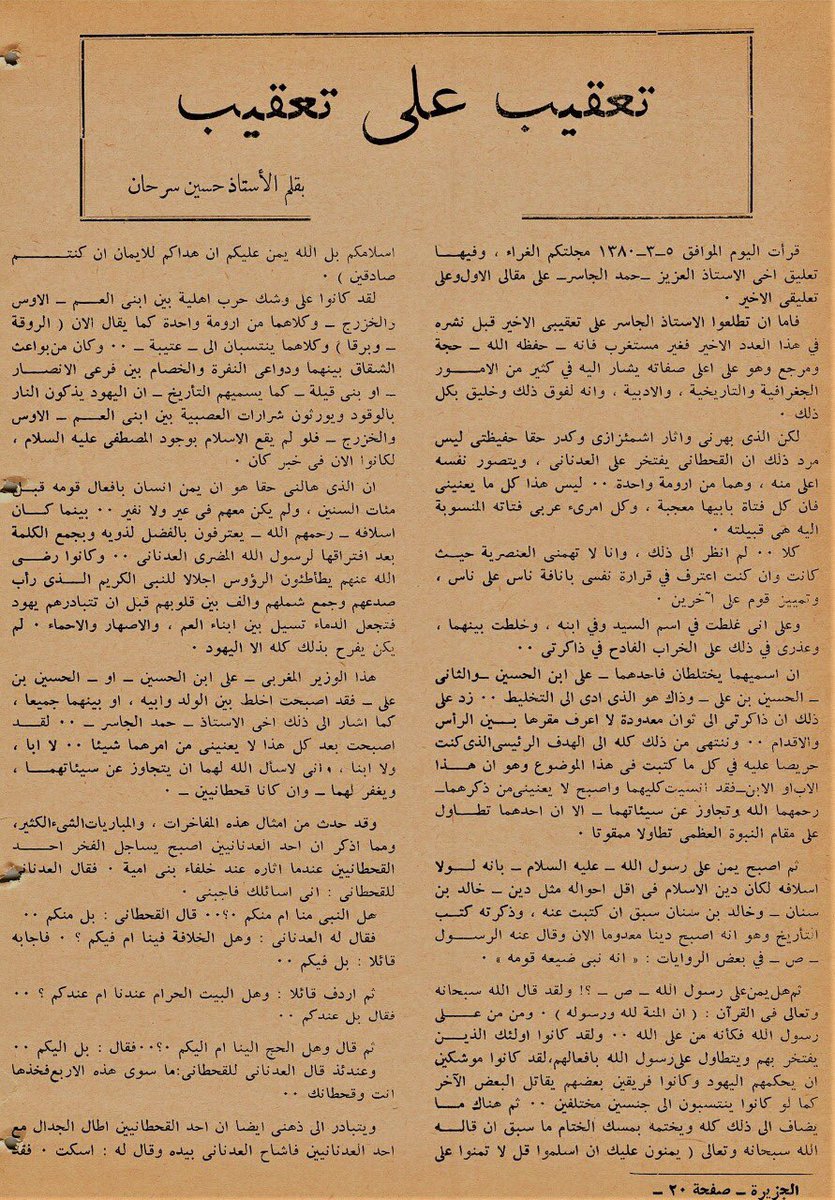 تعقيب على تعقيب
بقلم الأستاذ حسين سرحان
قرأت اليوم الموافق ٥-٣-١٣٨٠ مجلتكم الغراء ، وفيهـا
تعليق اخى الاستاذ العزيز -حمد الجاسر- على مقالى الاول وعلى
تعليقى الاخير ٠
فاما ان تطلعوا الاستاذ الجاسر على تعقيبى الاخير قبل نشره
في هذا العدد الاخير فغير مستغرب فانه - حفظه الله - حجة
ومرجع وهو على اعلى صفاته يشار اليه في كثير من الامـور
الجغرافية والتاريخية ، والادبية ، وانه لفوق ذلك وخليق بكل
ذلك ٠
لكن الذى بهرنى واثار اشمئزازى وكدر حقا حفيظتى ليس
مرد ذلك ان القحطانى يفتخر على العدنانى ، ويتصور نفسه
اعلى منه ، وهما من ارومة واحدة ٠٠ ليس هذا كل ما يعنينى
فان كل فتاة بابيها معجبة ، وكل امرىء عربى فتاته المنسوبة
اليه هى قبيلته ٠
كلا ٠٠ لم انظر الى ذلك ، وانا لا تهمنى العنصرية حيـث
كانت وان كنت اعترف في قرارة نفسى بانافة ناس على ناس ،
وتمييز قوم على آخرين ٠
وعلى انى غلطت في اسم السيد وفي ابنه ، وخلطت بينهما ،
وعذرى في ذلك على الخراب الفادح في ذاكرتى ٠٠
ان اسميهما يختلطان فاحدهمـا - على ابن الحسين -والثانى
- الحسين بن على - وذاك هو الذى ادى الى التخليط ٠٠ زد على
ذلك ان ذاكرتى الى ثوان معدودة لا اعرف مقرها بـين الرأس
والاقدام ٠٠ وننتهى من ذلك كله الى الهدف الرئيسى الذى كنت
حريصا عليه في كل ما كتبت فى هذا الموضوع وهو ان هـذا
الاب او الابن-فقد انسيت كليهما واصبح لا يعنينى من ذكرهما-
رحمهما الله وتجاوز عن سيئاتهمـا - الا ان احدهما تطـاول
على مقام النبوة العظمى تطاولا ممقوتا ٠
ثم اصبح يمن على رسول الله - عليه السلام - بانه لـولا
اسلافه لكان دين الاسلام فى اقل احواله مثل دين - خالد بن
سنان - وخالد بن سنان سبق ان كتبت عنه ، وذكرته كتـب
التأريخ وهو انه اصبح دينا معدوما الان وقال عنه الرسـول
- ص - في بعض الروايات : « انه نبى ضيعه قومه » ٠
ثم هل يمن على رسول الله - ص - ؟! ولقد قال الله سبحانه
وتعالى فى القرآن : ( ان المنة لله ورسوله ) ٠ ومن من عـلى
رسول الله فكأنه من على الله ٠٠ ولقد كانوا اولئك الذيـن
يفتخر بهم ويتطاول على رسول الله بافعالهم،لقد كانوا موشكين
ان يحكمهم اليهود وكانوا فريقين بعضهم يقاتل البعض الآخر
كما لو كانوا ينتسبون الى جنسين مختلفين ٠٠ ثم هناك مـا
يضاف الى ذلك كله ويختمه بمسك الختام ما سبق ان قالـه
الله سبحانه وتعالى ( يمنون عليك ان اسلموا قل لا تمنوا على
اسلامكم بل الله يمن عليكم ان هداكم للايمان ان كنتـم
صادقين ) ٠
لقد كانوا على وشك حرب اهلية بين ابنى العـم - الاوس
والخزرج - وكلاهما من ارومة واحدة كما يقال الان ( الروقة
- وبرقا ) وكلاهما ينتسبان الى - عتيبة - ٠٠ وكان من بواعث
الشقاق بينهما ودواعى النفرة والخصام بين فرعى الانصـار
- او بنى قيلة - كما يسميهم التأريخ - ان اليهود يذكون النار
بالوقود ويورثون شرارات العصبية بين ابنى العـم - الاوس
والخزرج - فلو لم يقع الاسلام بوجود المصطفى عليه السلام ،
لكانوا الان فى خبر كان ٠
ان الذى هالنى حقا هو ان يمن انسان بافعال قومه قبـل
مئات السنين ، ولم يكن معهم فى عير ولا نفير ٠٠ بينما كـان
اسلافه - رحمهم الله - يعترفون بالفضل لذويه وبجمع الكلمة
بعد افتراقها لرسول الله المضرى العدنانى ٠٠ وكانوا رضـى
الله عنهم يطأطئون الرؤوس اجلالا للنبى الكريم الـذى رأب
صدعهم وجمع شملهم والف بين قلوبهم قبل ان تتبادرهم يهود
فتجعل الدماء تسيل بين ابناء العم ، والاصهار والاحماء ٠ لم
يكن يفرح بذلك كله الا اليهود ٠
هذا الوزير المغربى - على ابن الحسين - او - الحسين بن
على - فقد اصبحت اخلط بين الولد وابيه ، او بينهما جميعا ،
كما اشار الى ذلك اخى الاستاذ - حمد الجاسر - ٠٠ لقـد
اصبحت بعد كل هذا لا يعنينى من امرهما شيئا ٠٠ لا ابا ،
ولا ابنا ، وانى لاسأل الله لهما ان يتجاوز عن سيئاتهمـا ،
ويغفر لهمـا - وان كانا قحطانيين - ٠
وقد حدث من امثال هذه المفاخرات ، والمباريات الشىء الكثير،
ومما اذكر ان احد العدنانيين اصبح يساجل الفخر احـد
القحطانيين عندما اثاره عند خلفاء بنى امية ٠ فقال العدنانى
للقحطانى : انى اسائلك فاجبنى ٠
هل النبى منا ام منكم ؟٠٠٠ قال القحطانى : بل منكم ٠٠
فقال له العدنانى : وهل الخلافة فينا ام فيكم ؟ ٠ فاجابه
قائلا : بل فيكم ٠٠
ثم اردف قائلا : وهل البيت الحرام عندنا ام عندكم ؟ ٠٠
فقال بل عندكم ٠٠
ثم قال وهل الحج الينا ام اليكم ؟٠٠٠فقال : بل اليكم ٠٠
وعندئذ قال العدنانى للقحطانى:ما سوى هذه الاربع فخذها
انت وقحطانك ٠٠
ويتبادر الى ذهنى ايضا ان احد القحطانيين اطال الجدال مع
احد العدنانيين فاشاح العدنانى بيده وقال له : اسكت ٠ فقد
الجزيرة - صفحة ٢٠ -